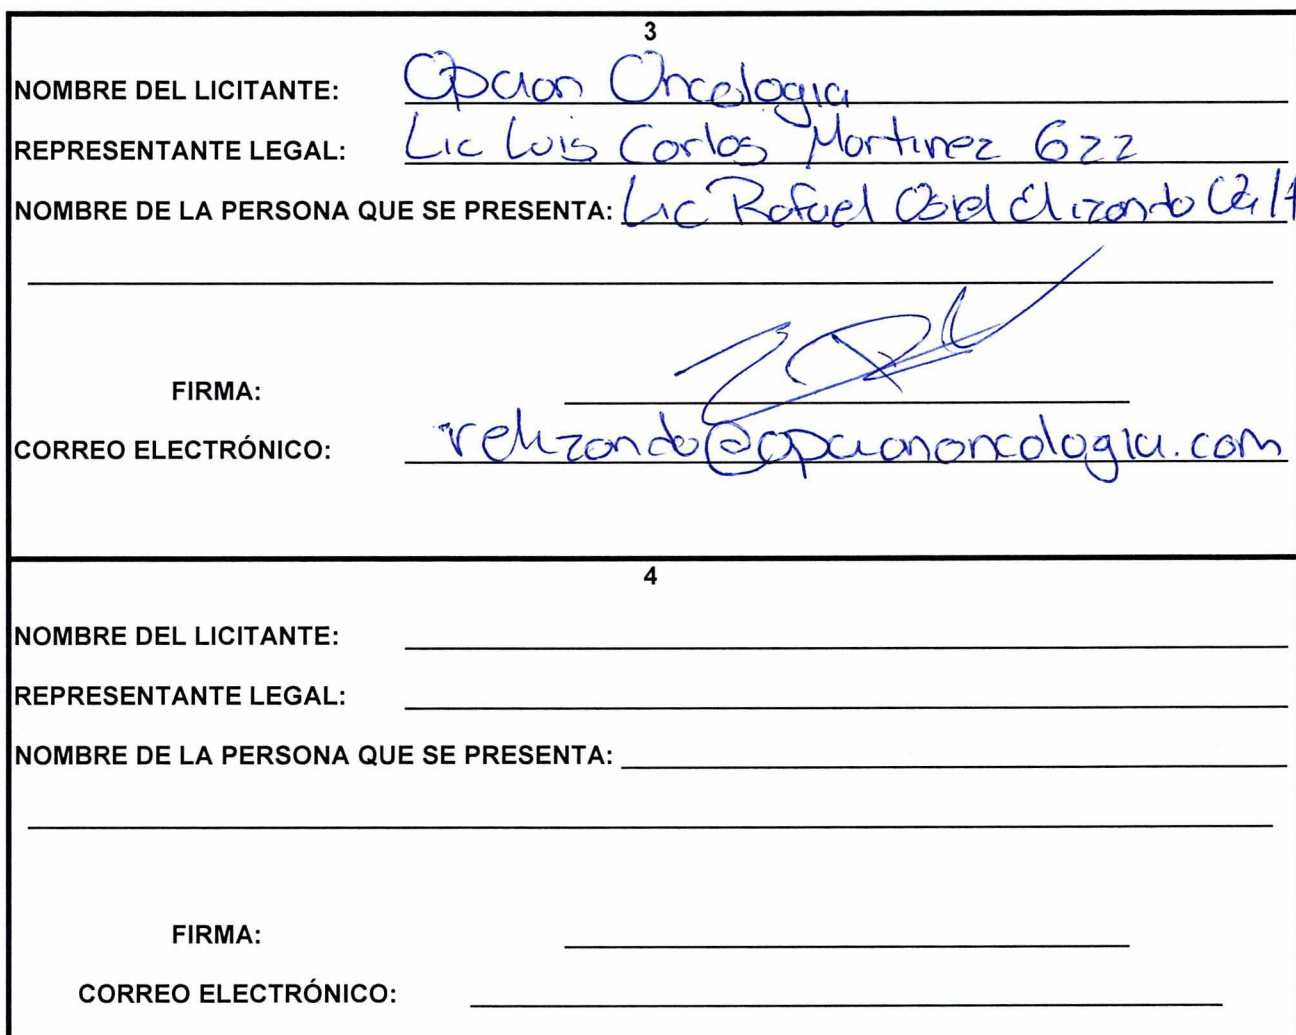 3
NOMBRE DEL LICITANTE: Opcion Oncologia
REPRESENTANTE LEGAL: Lic Luis Carlos Martinez 622
NOMBRE DE LA PERSONA QUE SE PRESENTA: Lic Rafael Osiel Elizondo
FIRMA:
CORREO ELECTRÓNICO: relizondo@opciononcologia.com
4
NOMBRE DEL LICITANTE:
REPRESENTANTE LEGAL:
NOMBRE DE LA PERSONA QUE SE PRESENTA:
FIRMA:
CORREO ELECTRÓNICO: